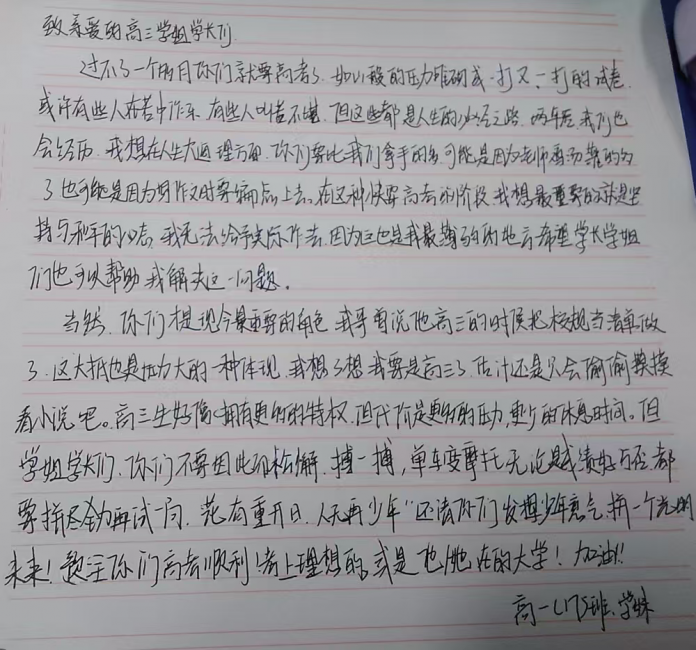 致亲爱的高三学姐学长们
过不了一个月你们就要高考了。如山般的压力堆砌成一打又一打的试卷.
或许有些人在苦中作乐.有些人叫苦不堪.但这些都是人生的必经之路.两年后我们也
会经历.我想在人生大道理方面.你们要比我们拿手的多.可能是因为老师
了也可能是因为写作文时要编点上去。在这种快要高考的阶段.我想最重要的就是坚
持与刷题的心态.我无法给予实际作法.因为这也是我最薄弱的地方希望学长学姐
们也可以帮助我解决这一问题。
当然.你们才是现今最重要的角色.我哥曾说他高三的时候把校规当清单做
了.这大抵也是压力大的一种体现.我想了想我要是高三了.估计还是只会偷偷摸摸
看小说吧。高三生好像拥有更多的特权.但代价是更多的压力,更少的休息时间。但
学姐学长们.你们不要因此而松懈.搏一搏,单车变摩托无论成绩好与否都
要拼尽全力再试一局.花有重开日.人无再少年"还请你们发挥少年意气拼一个光明
未来!预祝你们高考顺利!考上理想的,或是他/她在的大学!加油!!
高一(17)班.学妹